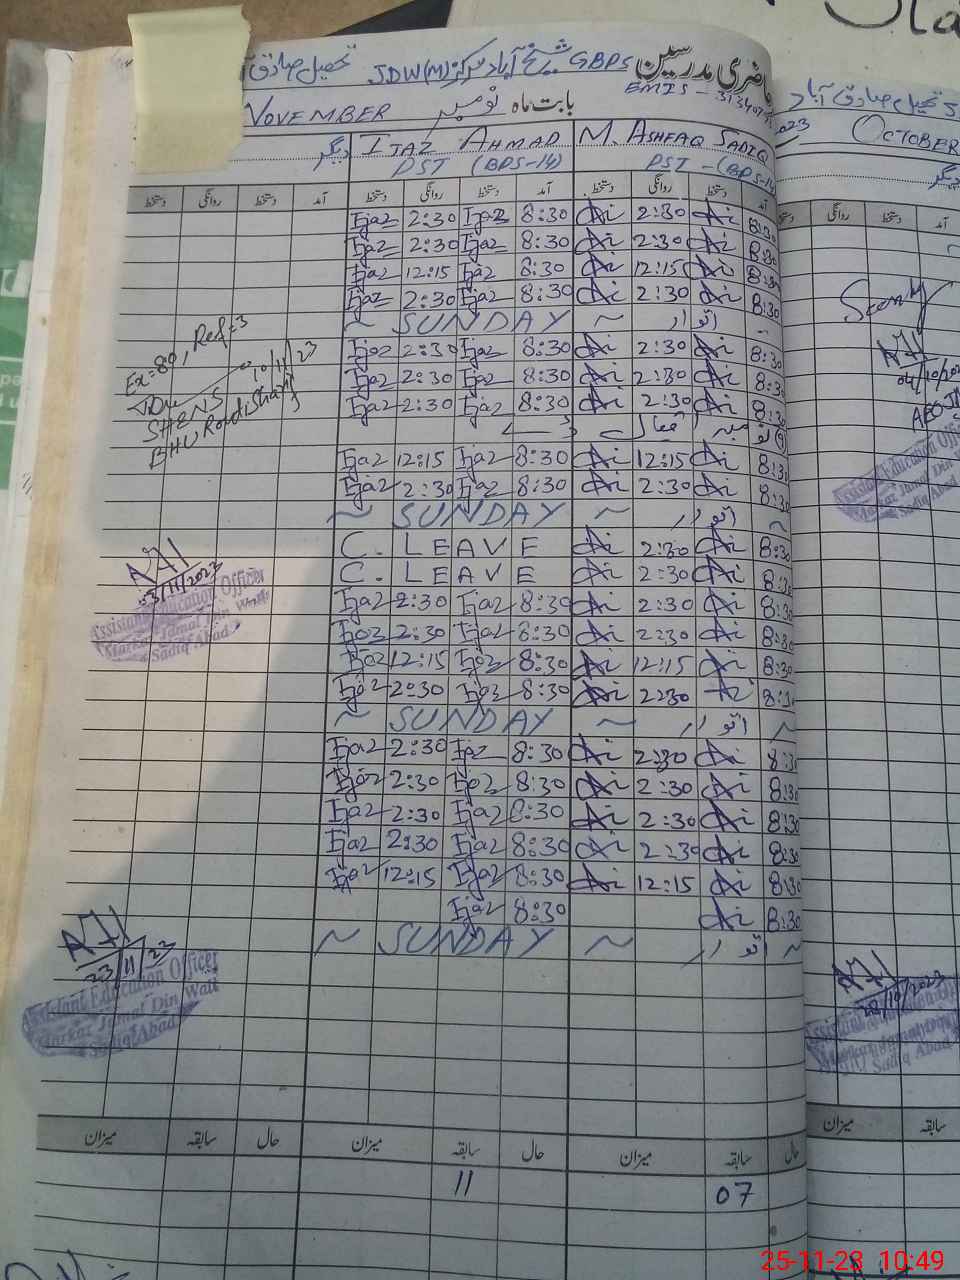 حاضری مدرسین GBPS شیخ آباد مرکز JDW(M) تحصیل صادق آباد
EMIS -
بابت ماہ نومبر NOVEMBER
M. ASHFAQ SADIQ IJAZ AHMAD دیگر
PST - (BPS-14 PST (BPS-14)
آمد دستخط روانگی دستخط آمد دستخط روانگی دستخط آمد دستخط روانگی دستخط
Ijaz 2:30 Ijaz 8:30 2:30 8:30
Ijaz 2:30 Ijaz 8:30 2:30 8:30
Ijaz 12:15 Ijaz 8:30 12:15 8:30
Ijaz 2:30 Ijaz 8:30 2:30 8:30
~ SUNDAY ~ اتوار
Ijaz 2:30 Ijaz 8:30 2:30 8:30
Ijaz 2:30 Ijaz 8:30 2:30 8:30
Ijaz 2:30 Ijaz 8:30 2:30 8:30
(9) نومبر اقبال
Ijaz 12:15 Ijaz 8:30 12:15 8:30
Ijaz 2:30 Ijaz 8:30 2:30 8:30
~ SUNDAY ~ اتوار ~
C. LEAVE 2:30 8:30
C. LEAVE 2:30 8:30
Ijaz 2:30 Ijaz 8:30 2:30 8:30
Ijaz 2:30 Ijaz 8:30 2:30 8:30
Ijaz 12:15 Ijaz 8:30 12:15 8:30
Ijaz 2:30 Ijaz 8:30 2:30 8:30
~ SUNDAY ~ اتوار ~
Ijaz 2:30 Ijaz 8:30 2:30 8:30
Ijaz 2:30 Ijaz 8:30 2:30 8:30
Ijaz 2:30 Ijaz 8:30 2:30 8:30
Ijaz 2:30 Ijaz 8:30 2:30 8:30
Ijaz 12:15 Ijaz 8:30 12:15 8:30
Ijaz 8:30 8:30
~ SUNDAY ~ اتوار ~
Ex=89, Ref=3
10/11/23
SHENS
BHU
3/11/2023
Assistant Education Officer
Markaz Jamal Din Wali
Sadiq Abad
23/11/23
Assistant Education Officer
Markaz Jamal Din Wali
Sadiq Abad
حال سابقہ میزان حال سابقہ میزان حال سابقہ میزان
11 07
تحصیل صادق آباد
2023 OCTOBER
دیگر
آمد دستخط روانگی دستخط
04/10/202
AEO
Assistant Education Officer
Markaz Jamal Din Wali
Sadiq Abad
28/10/2023
Sadiq Abad
سابقہ میزان
25-11-23 10:49